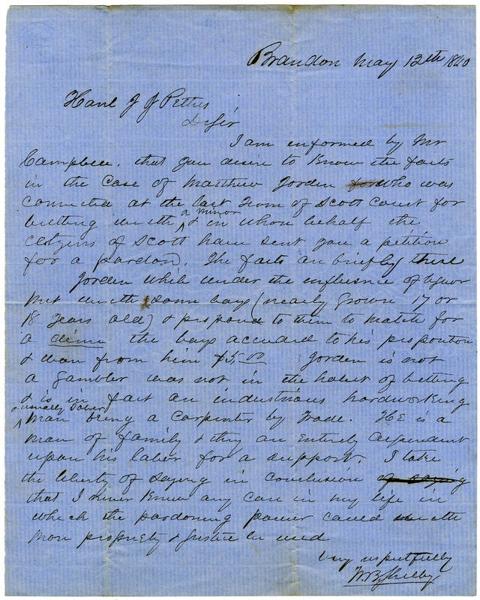 Brandon May 12th 1860
Hanl J J Pettus
D Sir
I am informed by Mr
Campbell. that you desire to Know the facts
in the case of Matthew Jorden who was
convicted at the last Term of Scott Court for
betting with a minor & in whose behalf the
citizens of Scott have sent you a petition
for a pardon. The facts are briefly these
Jorden while under the influence of liquor
met with some boys (nearly grown 17 or
18 years old) & proposed to them to match for
a dime the boys acceeded to his proposition
& won from him $5.00 Jorden is not
a gambler was not in the habit of betting
& is in fact an industrious hardworking
usually sober
man being a carpenter by Trade. He is a
man of family & they are Entirely dependent
upon his labor for a support. I take
the liberty of saying in conclusion
that I never Knew any case in my life in
which the pardoning power could with
more propriety & Justice be used
Very respectfully
W. B. Shelby